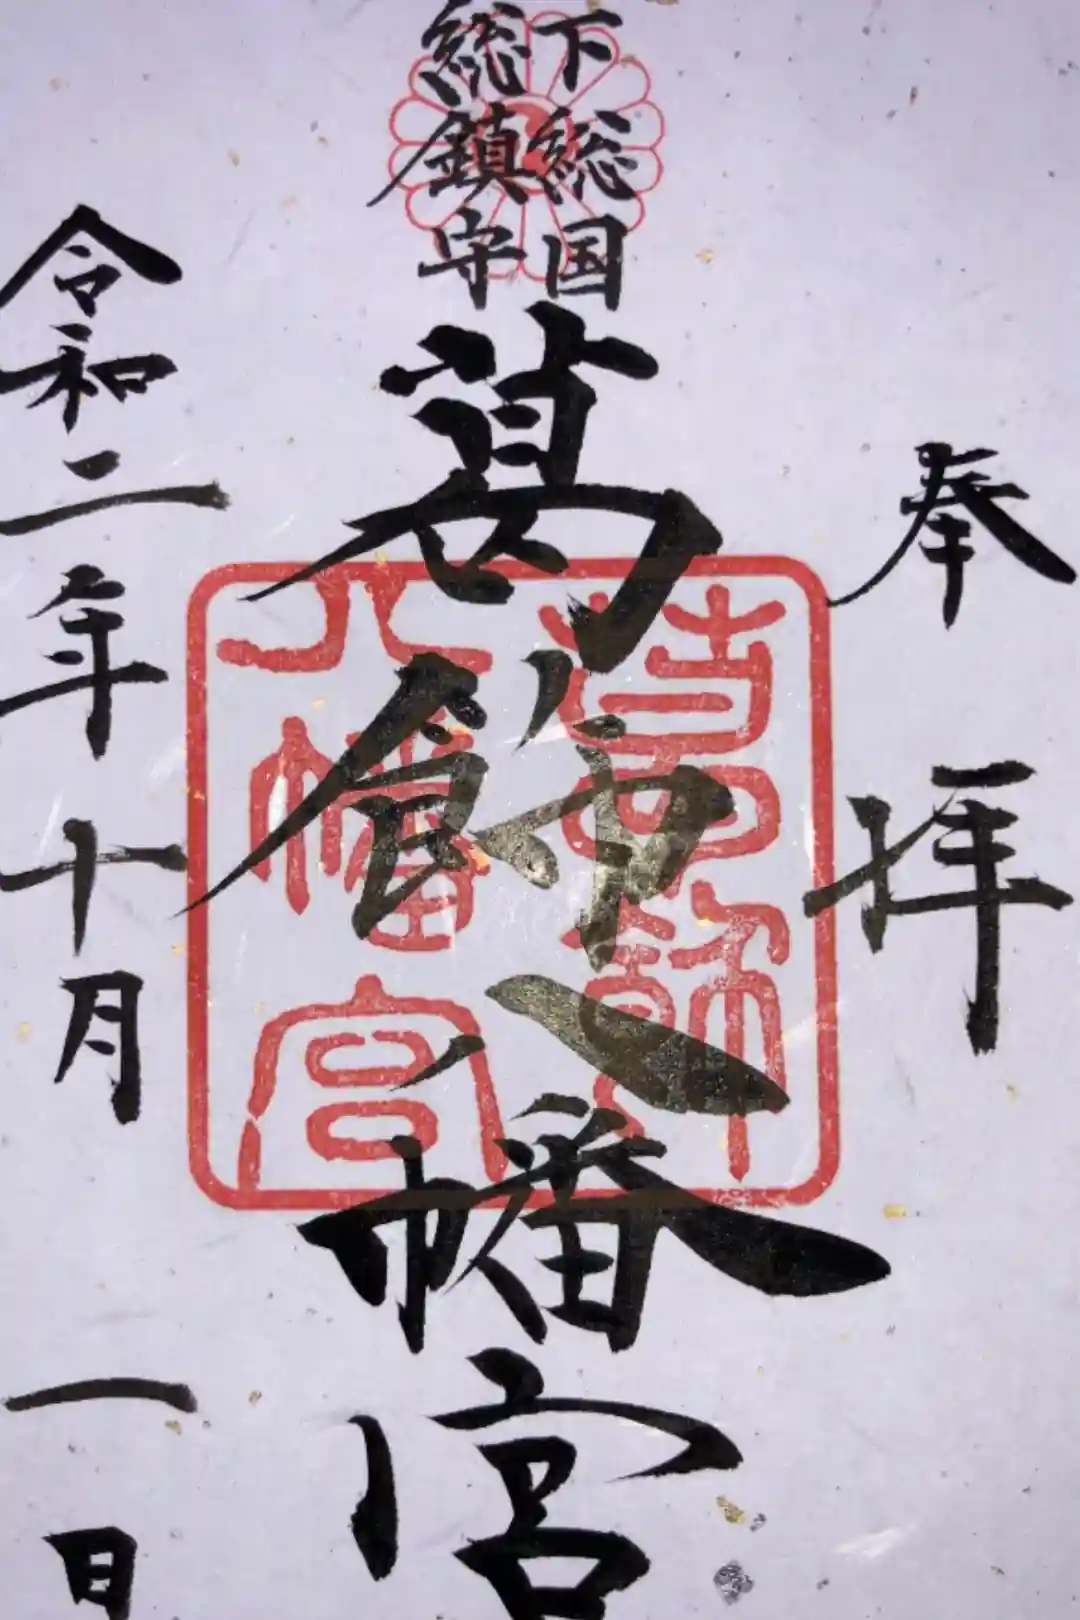 奉拝
下総国
総鎮守
葛飾八幡宮
葛飾
八幡宮
令和二年十月一日